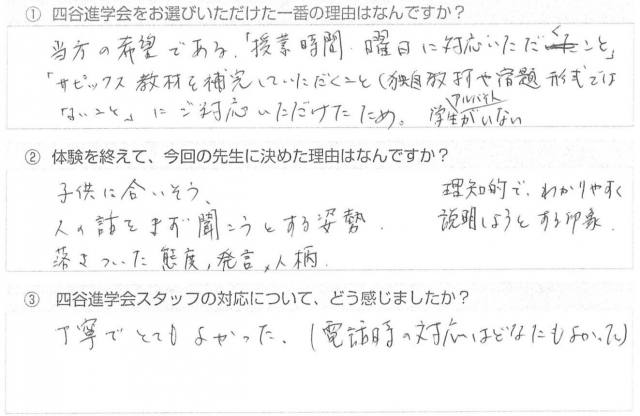 ① 四谷進学会をお選びいただけた一番の理由はなんですか？
当方の希望である、「授業時間・曜日に対応いただくこと」
「サピックス教材を補完していただくこと（独自教材や宿題形式では
ないこと」にご対応いただけたため。 学生アルバイトがいない
② 体験を終えて、今回の先生に決めた理由はなんですか？
子供に合いそう、 理知的で、わかりやすく
人の話をまず聞こうとする姿勢、 説明しようとする印象、
落ちついた態度、発言、人柄、
③ 四谷進学会スタッフの対応について、どう感じましたか？
丁寧でとてもよかった、（電話時の対応はどなたもよかった）